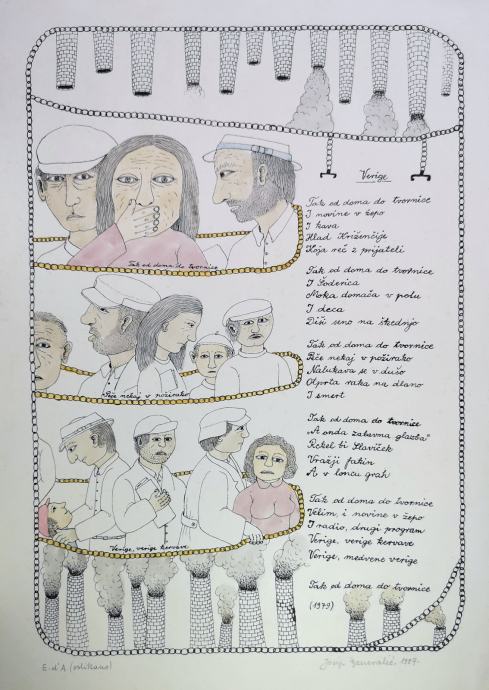 Verige
Tak od doma do tvornice
I novine v žepo
I kava
Hlad Križenčije
Koja reč z prijateli
Tak od doma do tvornice
I Šoderica
Moka domača v polu
I deca
Diši seno na škednjo
Tak od doma do tvornice
Peče nekaj v požirako
Nalukava se v dušo
Otprta raka na dlano
I smert
Tak od doma do tvornice
„A onda zabavna glazba"
Rekel bi Slaviček
Vražji fakin
A v loncu grah
Tak od doma do tvornice
Velim, i novine v žepo
I radio, drugi program
Verige, verige kervave
Verige, medvene verige
Tak od doma do tvornice
(1979)
Tak od doma do tvornice
Peče nekaj v požirako
Verige, verige kervave
E. d'A (oslikano)
Josip Generalić 1987.